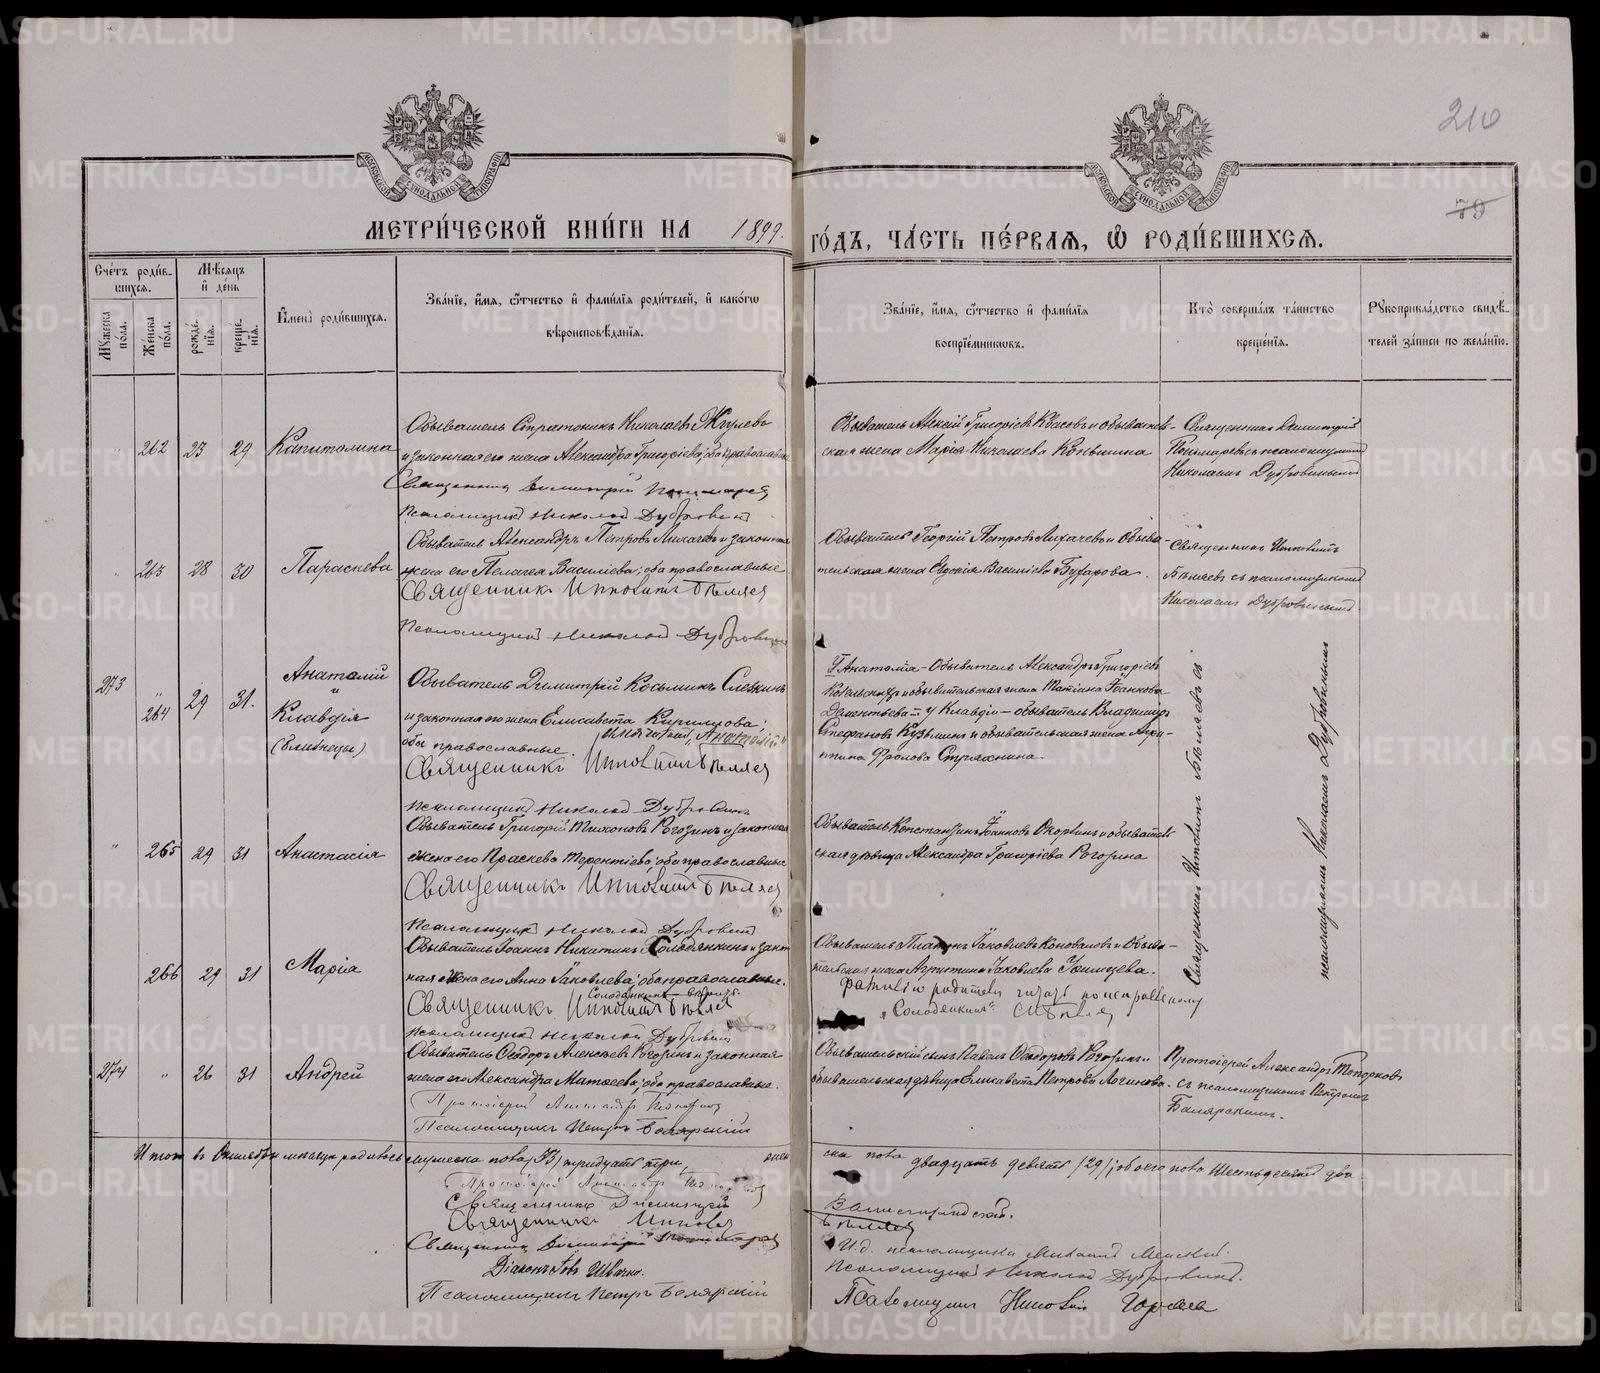 METRIKI.GASO-URAL.RU
210
79
МОСКОВСКОЙ СѴНОДАЛЬНОЙ ТИПОГРАФІИ
МЕТРИ́ЧЕСКОЙ КНИ́ГИ НА 1899. ГО́ДЪ, ЧА́СТЬ ПЕ́РВАЯ, Ѡ РОДИ́ВШИХСЯ.
Сче́тъ роди́вшихся.
Мꙋ́жеска по́ла.
Же́нска по́ла.
Мѣ́сяцъ и҆ де́нь
рожде́нїѧ.
креще́нїѧ.
И҆мена̀ роди́вшихся.
Зва́нїе, и҆́мѧ, ѻ҆́тчество и҆ фами́лїѧ роди́телей, и҆ како́гѡ
вѣроисповѣ́данїѧ.
Зва́нїе, и҆́мѧ, ѻ҆́тчество и҆ фами́лїѧ
воспрїе́мниковъ.
Кто̀ соверша́лъ та́инство
креще́нїѧ.
Рꙋкоприкла́дство свидѣ́телей за́писи по жела́нїю.
262 23 29 Капитолина
Обыватель Стратоникъ Николаевъ Жгулевъ
и законная его жена Александра Григорiева; оба православн.
Священникъ Димитрiй Пономарев
Псаломщикъ Николай Дубровин
Обыватель Алексiй Григорiевъ Квасовъ и обыватель-
ская жена Марiя Николаева Конынина
Священник Димитрiй
Пономаревъ съ псаломщикомъ
Николаемъ Дубровинымъ
263 28 30 Параскева
Обыватель Александръ Петровъ Лихачевъ и законная
жена его Пелагея Василiева; оба православные
Священникъ Иннокентiй Бѣляев
Псаломщикъ Николай Дубровин
Обыватель Георгiй Петровъ Лихачевъ и обыва-
тельская жена Евдокiя Василiева Бухарова.
Священникъ Иннокентiй
Бѣляевъ съ псаломщикомъ
Николаемъ Дубровинымъ
273 " Анатолiй
264 29 31. Клавдiя
(близнецы)
Обыватель Димитрiй Косьминъ Слевкинъ
и законная его жена Елисавета Кирилова;
оба православные. "Анатолiй"
Священникъ Иннокентiй Бѣляев
Псаломщикъ Николай Дубровинъ
У Анатолiя - Обыватель Александръ Григорiевъ
и обывательская жена Татiана Iоаннова
Дементьева; у Клавдiи - обыватель Владимiръ
Стефановъ Кузьминъ и обывательская жена Агри-
пина Фролова Стряхнина.
Священникъ Иннокентiй Бѣляевъ съ
псаломщикомъ Николаемъ Дубровинымъ
" 265 29 31 Анастасiя
Обыватель Григорiй Тихоновъ Рогозинъ и законная
жена его Праскева Терентiева; оба православные
Священникъ Иннокентiй Бѣляев
Псаломщикъ Николай Дубровин
Обыватель Константинъ Iоанновъ и обыватель-
ская дѣвица Александра Григорiева Рогозина
266 29 31 Марiя
Обыватель Iоаннъ Никитинъ Солодянкинъ и закон-
ная жена его Анна Iаковлева; оба православные.
Солодянкинъ вѣрить.
Священникъ Иннокентiй Бѣляев
Псаломщикъ Николай Дубровин
Обыватель Платонъ Iаковлевъ Коноваловъ и Обыва-
тельская жена Агриппина Iаковлева
Фамилiю родителей читать по исправленному
"Солодянкинъ" С И Бѣляев
274 " 26 31 Андрей
Обыватель Ѳеодоръ Алексѣевъ Рогозинъ и законная
жена его Александра Матѳеева; оба православные.
Протоiерей Александр Топорков
Псаломщикъ Петръ Боярскiй
Обывательскiй сынъ Павелъ Ѳеодоровъ Рогозинъ и
обывательская дѣвица Елисавета Петрова Логинова.
Протоiерей Александръ Топорковъ
съ псаломщикомъ Петромъ
Боярскимъ.
Итого въ Октябрѣ мѣсяцѣ родилось мужеска пола (33) тридцать три, женска пола двадцать девять (29); обоего пола шестьдесятъ два
Протоiерей Александр Топорков
Священникъ Димитрiй
Священникъ Иннокен Бѣляев
Священникъ Димитрiй Пономарев
Дiаконъ Iовъ Швачко.
Псаломщикъ Петръ Боярскiй
И. д. псаломщика Михаилъ
Псаломщикъ Николай Дубровинъ.
Псаломщикъ